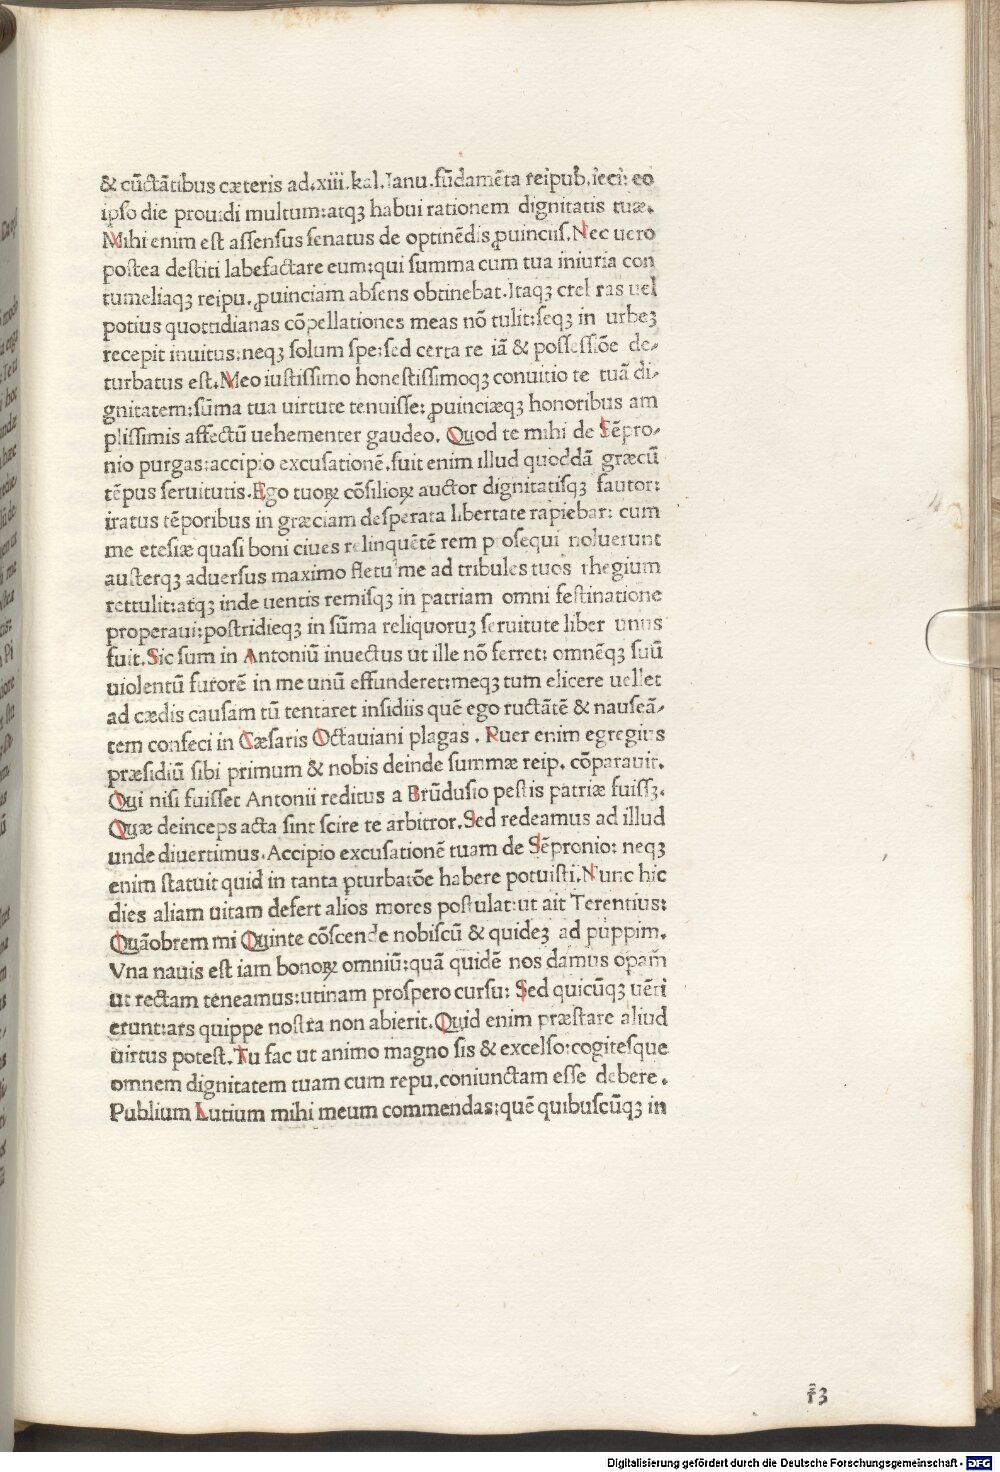 & cūctātibus cæteris ad.xiii.kal.Ianu.fūdamēta reipub.ieci: eo
ipso die prouidi multum:atqꝫ habui rationem dignitatis tuæ.
Mihi enim est assensus senatus de optinēdis ꝓuinciis.Nec uero
postea destiti labefactare eum:qui summa cum tua iniuria con
tumeliaqꝫ reipu.ꝓuinciam absens obtinebat.Itaqꝫ crebras uel
potius quottidianas cōpellationes meas nō tulit:seqꝫ in urbeꝫ
recepit inuitus:neqꝫ solum spe:sed certa re iā & possessiōe de-
turbatus est.Meo iustissimo honestissimoqꝫ conuitio te tuā di-
gnitatem:sūma tua uirtute tenuisse:ꝓuinciæqꝫ honoribus am
plissimis affectū uehementer gaudeo. Quod te mihi de Sēpro-
nio purgas:accipio excusationē.fuit enim illud quoddā græcū
tēpus seruitutis.Ego tuoꝝ cōsilioꝝ auctor dignitatisqꝫ fautor:
iratus tēporibus in græciam desperata libertate rapiebar: cum
me etesiæ quasi boni ciues relinquētē rem prosequi noluerunt
austerqꝫ aduersus maximo fletu me ad tribules tuos rhegium
rettulit:atqꝫ inde uentis remisqꝫ in patriam omni festinatione
properaui:postridieqꝫ in sūma reliquoruꝫ seruitute liber unus
fuit.Sic sum in Antoniū inuectus ut ille nō ferret: omnēqꝫ suū
uiolentū furorē in me unū effunderet:meqꝫ tum elicere uellet
ad cædis causam tū tentaret insidiis quē ego ructātē & nauseā-
tem confeci in Cæsaris Octauiani plagas . Puer enim egregius
præsidiū sibi primum & nobis deinde summæ reip. cōparauit.
Qui nisi fuisset Antonii reditus a Brūdusio pestis patriæ fuissꝫ.
Quæ deinceps acta sint scire te arbitror.Sed redeamus ad illud
unde diuertimus.Accipio excusationē tuam de Sēpronio: neqꝫ
enim statuit quid in tanta ꝑturbatōe habere potuisti.Nunc hic
dies aliam uitam defert alios mores postulat:ut ait Terentius:
Quāobrem mi Quinte cōscende nobiscū & quideꝫ ad puppim.
Vna nauis est iam bonoꝝ omniū:quā quidē nos damus opam̄
ut rectam teneamus:utinam prospero cursu: Sed quicūqꝫ uēti
erunt:ars quippe nostra non abierit.Quid enim præstare aliud
uirtus potest.Tu fac ut animo magno sis & excelso:cogitesque
omnem dignitatem tuam cum repu.coniunctam esse debere.
Publium Lutium mihi meum commendas:quē quibuscūqꝫ in
f3
Digitalisierung gefördert durch die Deutsche Forschungsgemeinschaft - DFG